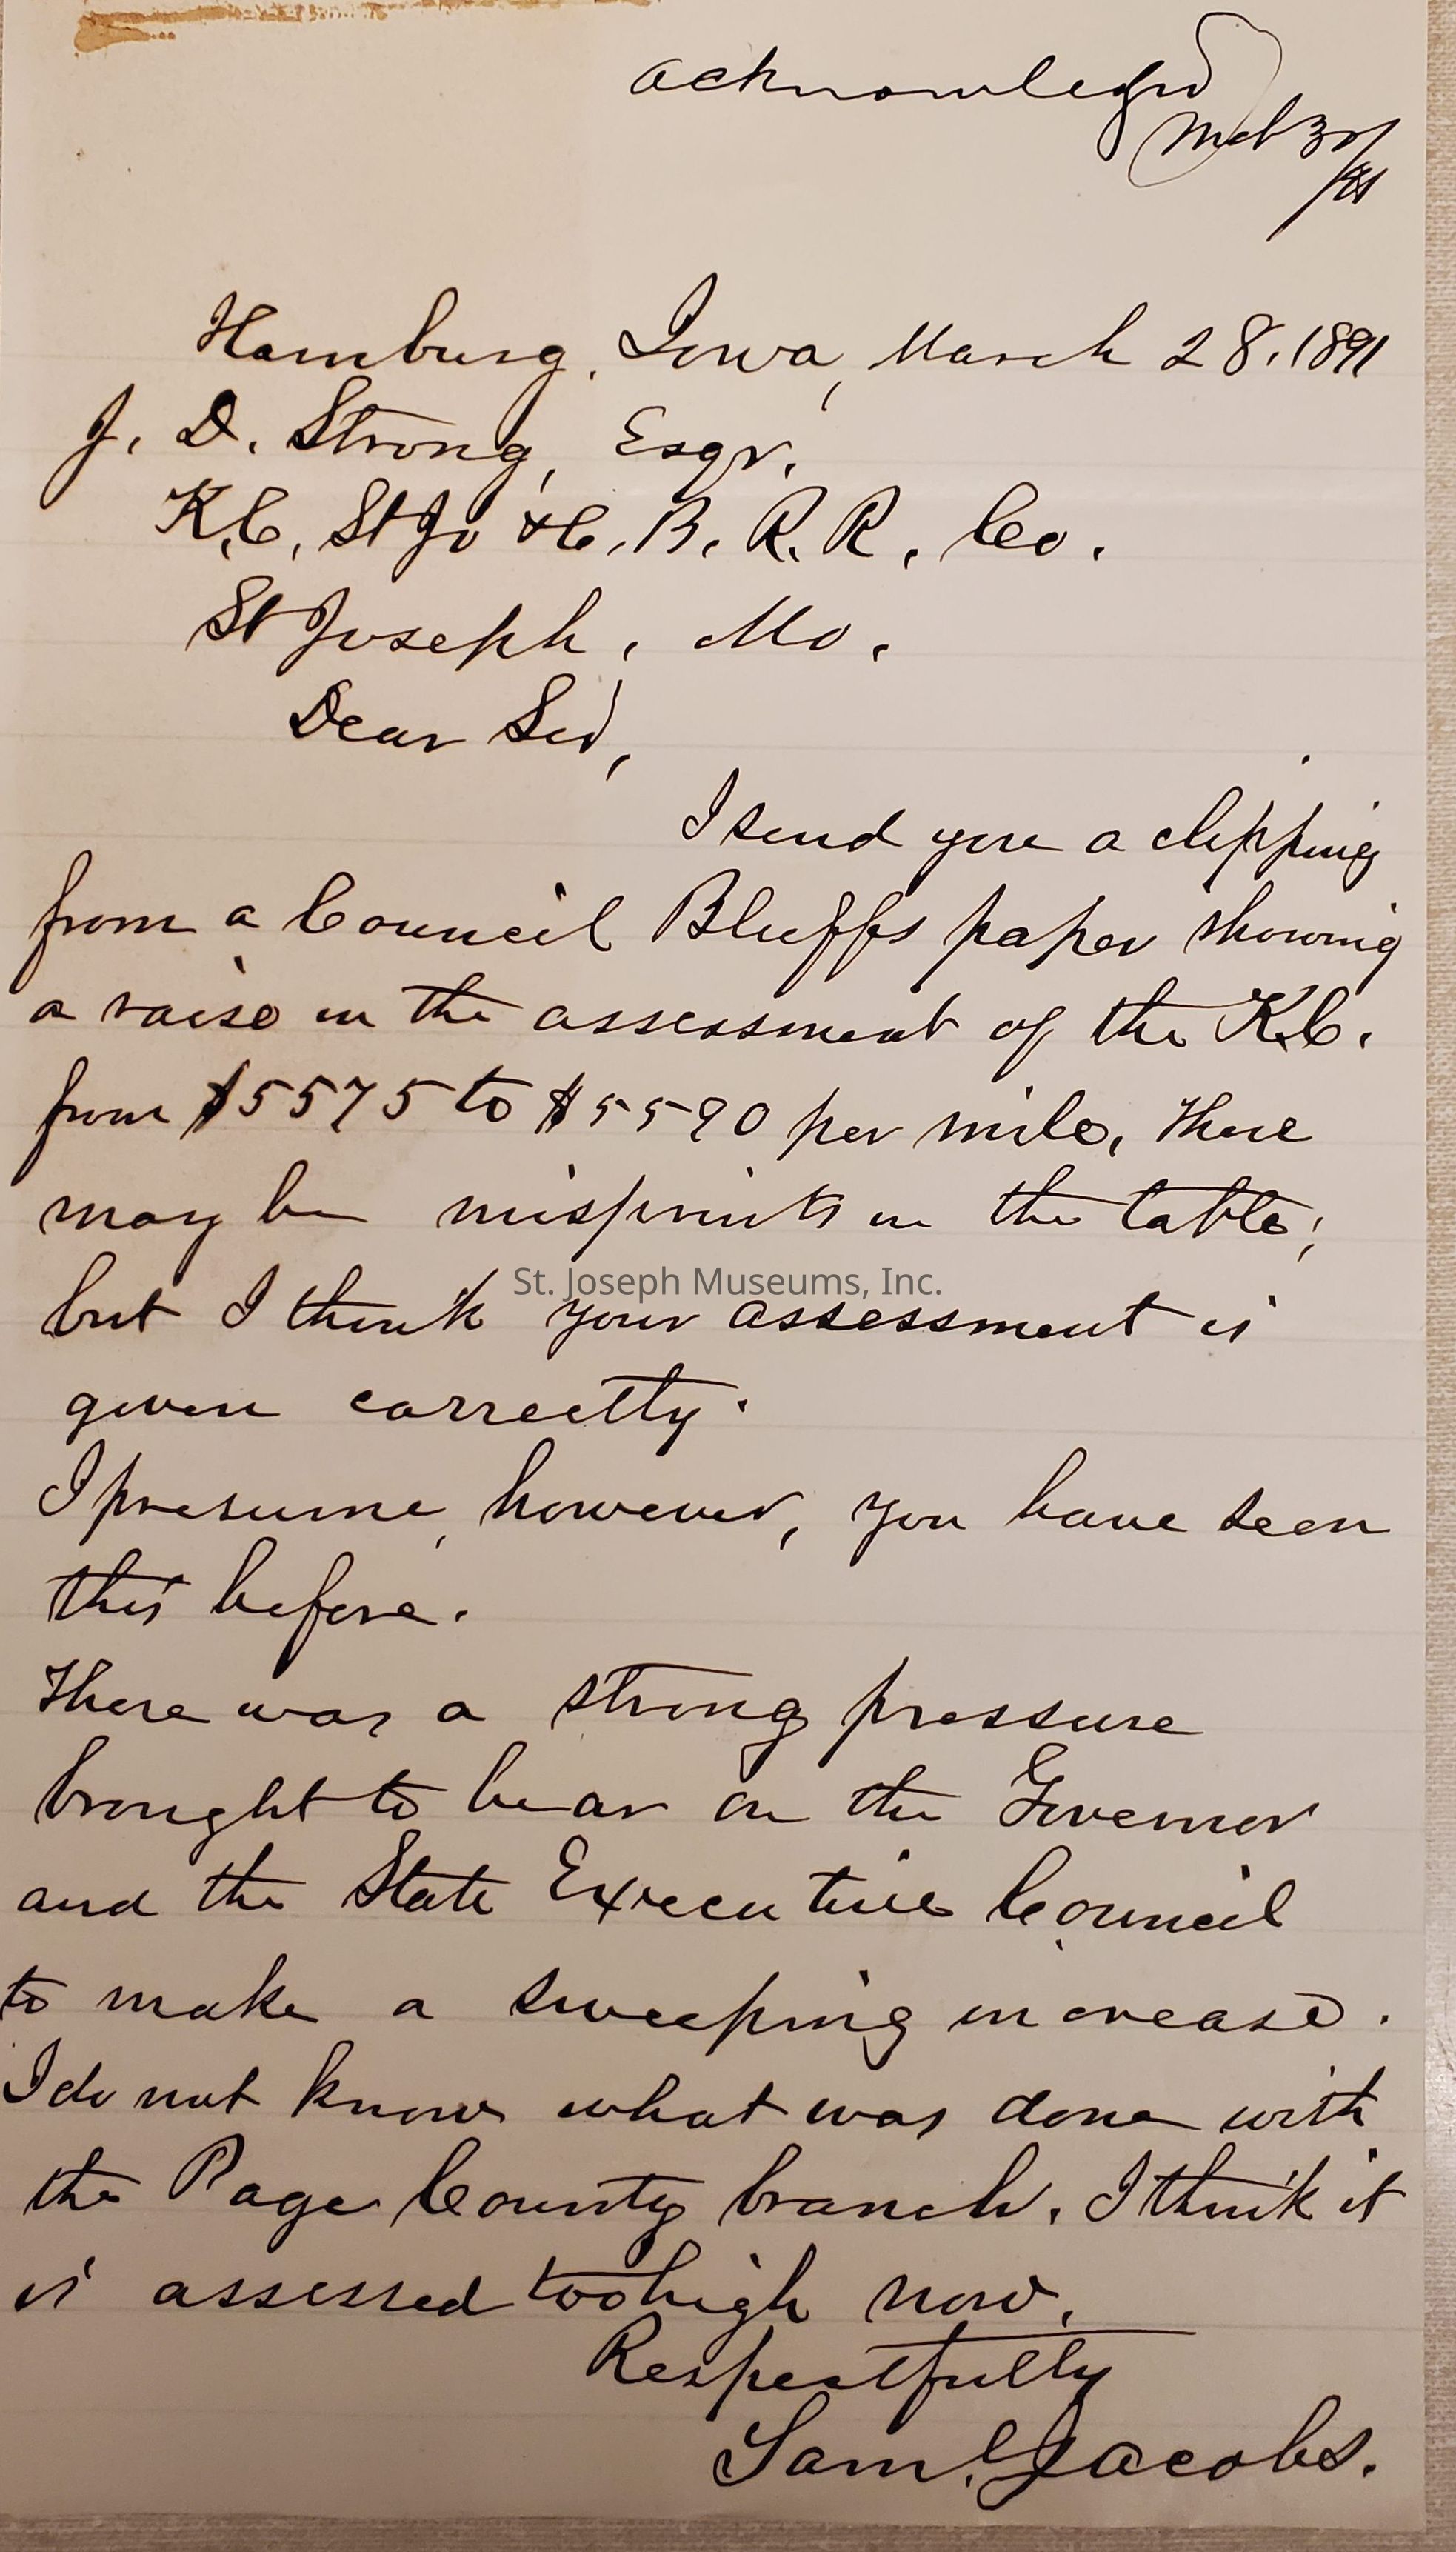 acknowlegd
Mch 30/
/91
Hamburg, Iowa, March 28, 1891
J. D. Strong, Esqr.
K.C. St Jo & C. B. R. R. Co.
St Joseph, Mo.
Dear Sir,
I send you a clipping
from a Council Bluffs paper showing
a raise in the assessment of the K.C.
from $5575 to $5590 per mile. There
may be misprints in the table;
St. Joseph Museums, Inc.
but I think your assessment is
given correctly.
I presume, however, you have seen
this before.
There was a strong pressure
brought to bear on the Governor
and the State Executive Council
to make a sweeping increase.
I do not know what was done with
the Page County branch. I think it
is assessed too high now.
Respectfully
Saml. Jacobs.